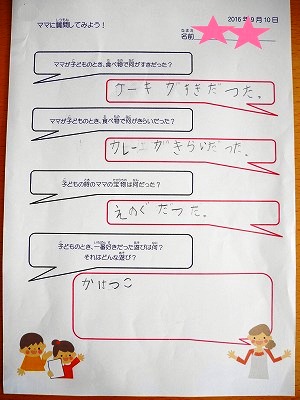 ママに質問してみよう！
2016年9月10日
名前
ママが子どものとき、食べ物で何がすきだった？
ケーキがすきだった。
ママが子どものとき、食べ物で何がきらいだった？
カレーがきらいだった。
子どもの時のママの宝物は何だった？
えのぐだった。
子どものとき、一番好きだった遊びは何？
それはどんな遊び？
かけっこ